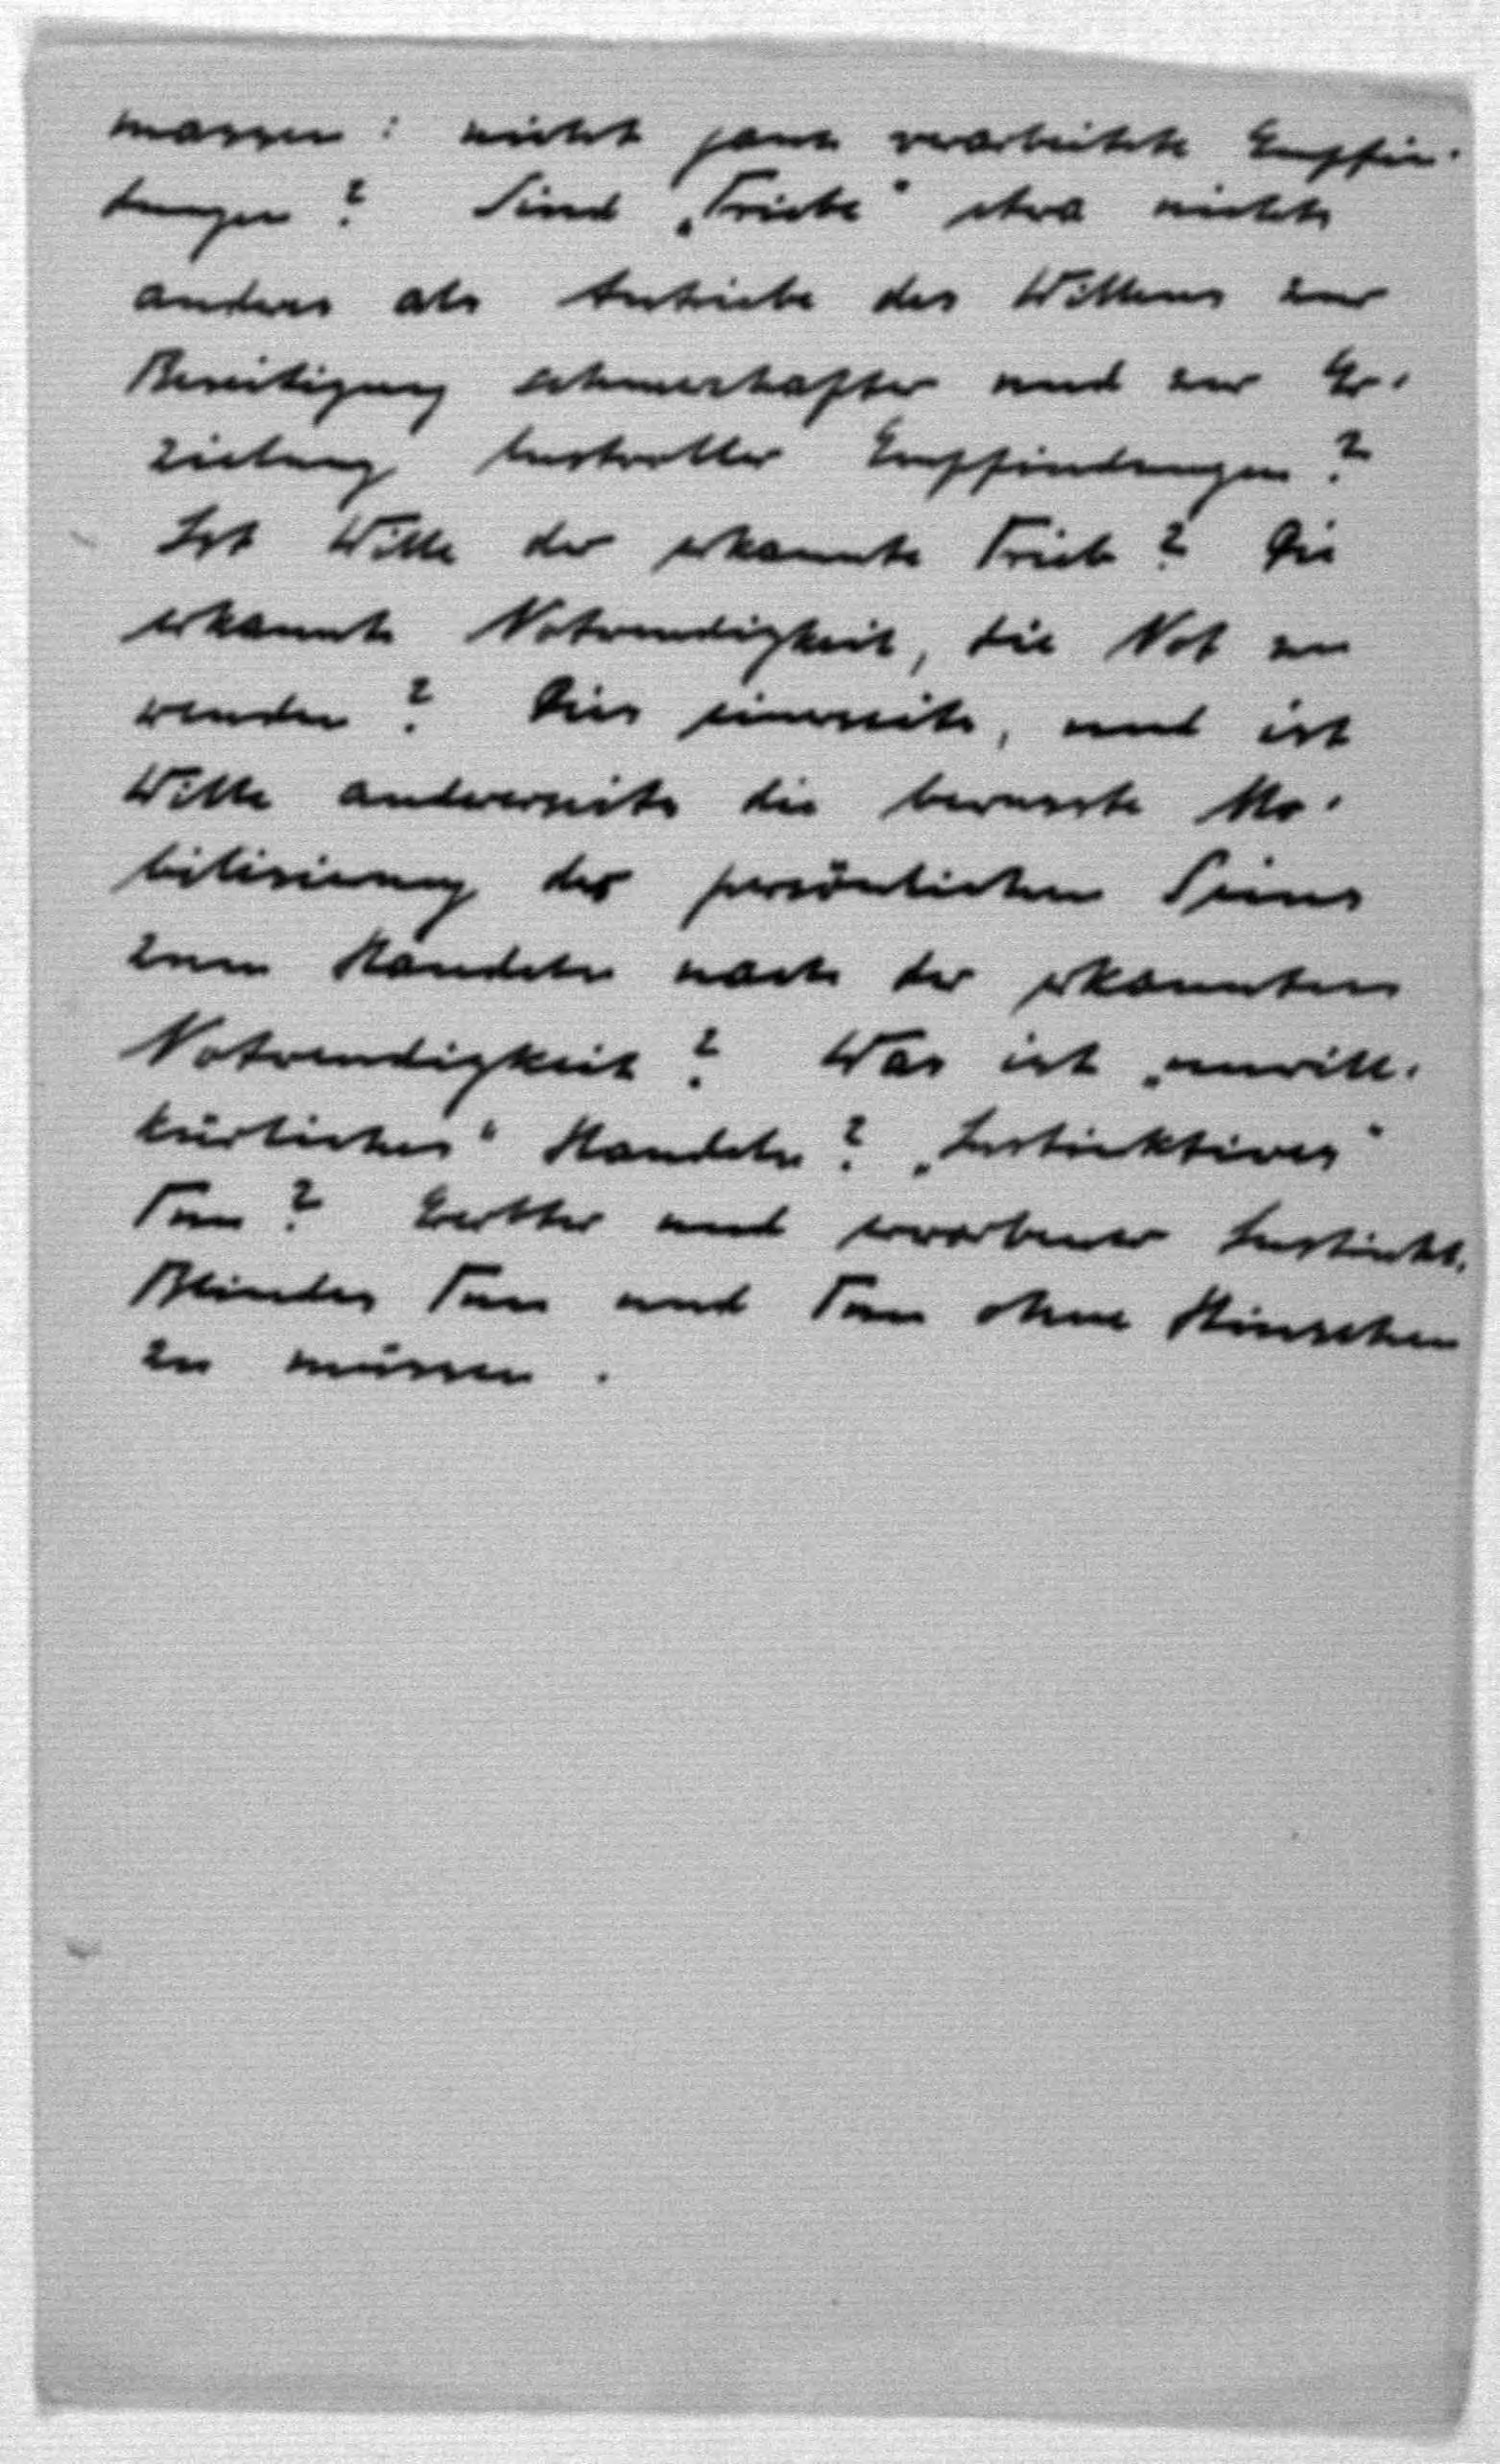 massen: nicht ganz verarbeitete Empfin-
dungen? Sind „Triebe" etwa nichts
anderes als Antriebe des Willens zur
Beseitigung schmerzhafter und zur Er-
zielung lustvoller Empfindungen?
Ist Wille der erkannte Trieb? Die
erkannte Notwendigkeit, die Not zu
wenden? Dies einerseits, und ist
Wille andererseits die bewusste Mo-
bilisierung des persönlichen Seins
zum Handeln nach der erkannten
Notwendigkeit? Was ist „unwill-
kürliches" Handeln? „Instinktives"
Tun? Ererbter und erworbener Instinkt.
Blindes Tun und Tun ohne Hinsehen
zu müssen.